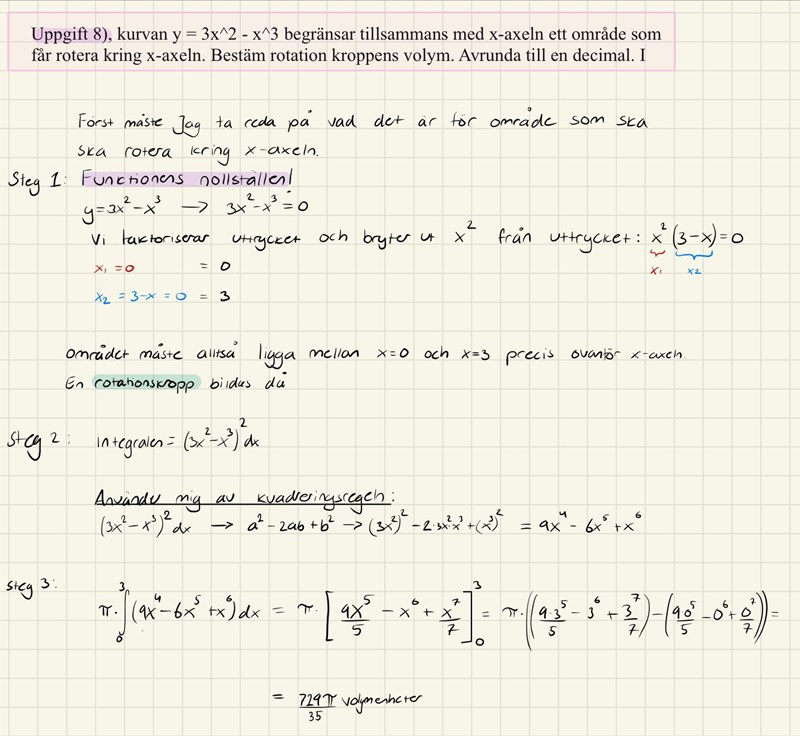 Uppgift 8), kurvan y = 3x^2 - x^3 begränsar tillsammans med x-axeln ett område som
får rotera kring x-axeln. Bestäm rotation kroppens volym. Avrunda till en decimal. I
Först måste Jag ta reda på vad det är för område som ska
ska rotera kring x-axeln.
Steg 1: Functionens nollställen!
y=3x² - x³ → 3x² - x³ = 0
Vi faktoriserar uttrycket och bryter ut x² från uttrycket: x² (3-x) = 0
x₁ = 0 = 0 x₁ x₂
x₂ = 3-x = 0 = 3
området måste alltså ligga mellan x=0 och x=3 precis ovanför x-axeln.
En rotationskropp bildas då
Steg 2: integralen = (3x² - x³)² dx
Använder mig av kvadreringsregeln:
(3x² - x³)² dx → a² - 2ab + b² → (3x²)² - 2·3x²·x³ + (x³)² = 9x⁴ - 6x⁵ + x⁶
Steg 3: π·∫₀³ (9x⁴ - 6x⁵ + x⁶) dx = π·[9x⁵/5 - x⁶ + x⁷/7]₀³ = π·((9·3⁵/5 - 3⁶ + 3⁷/7) - (9·0⁵/5 - 0⁶ + 0⁷/7)) =
= 729π/35 volymenheter